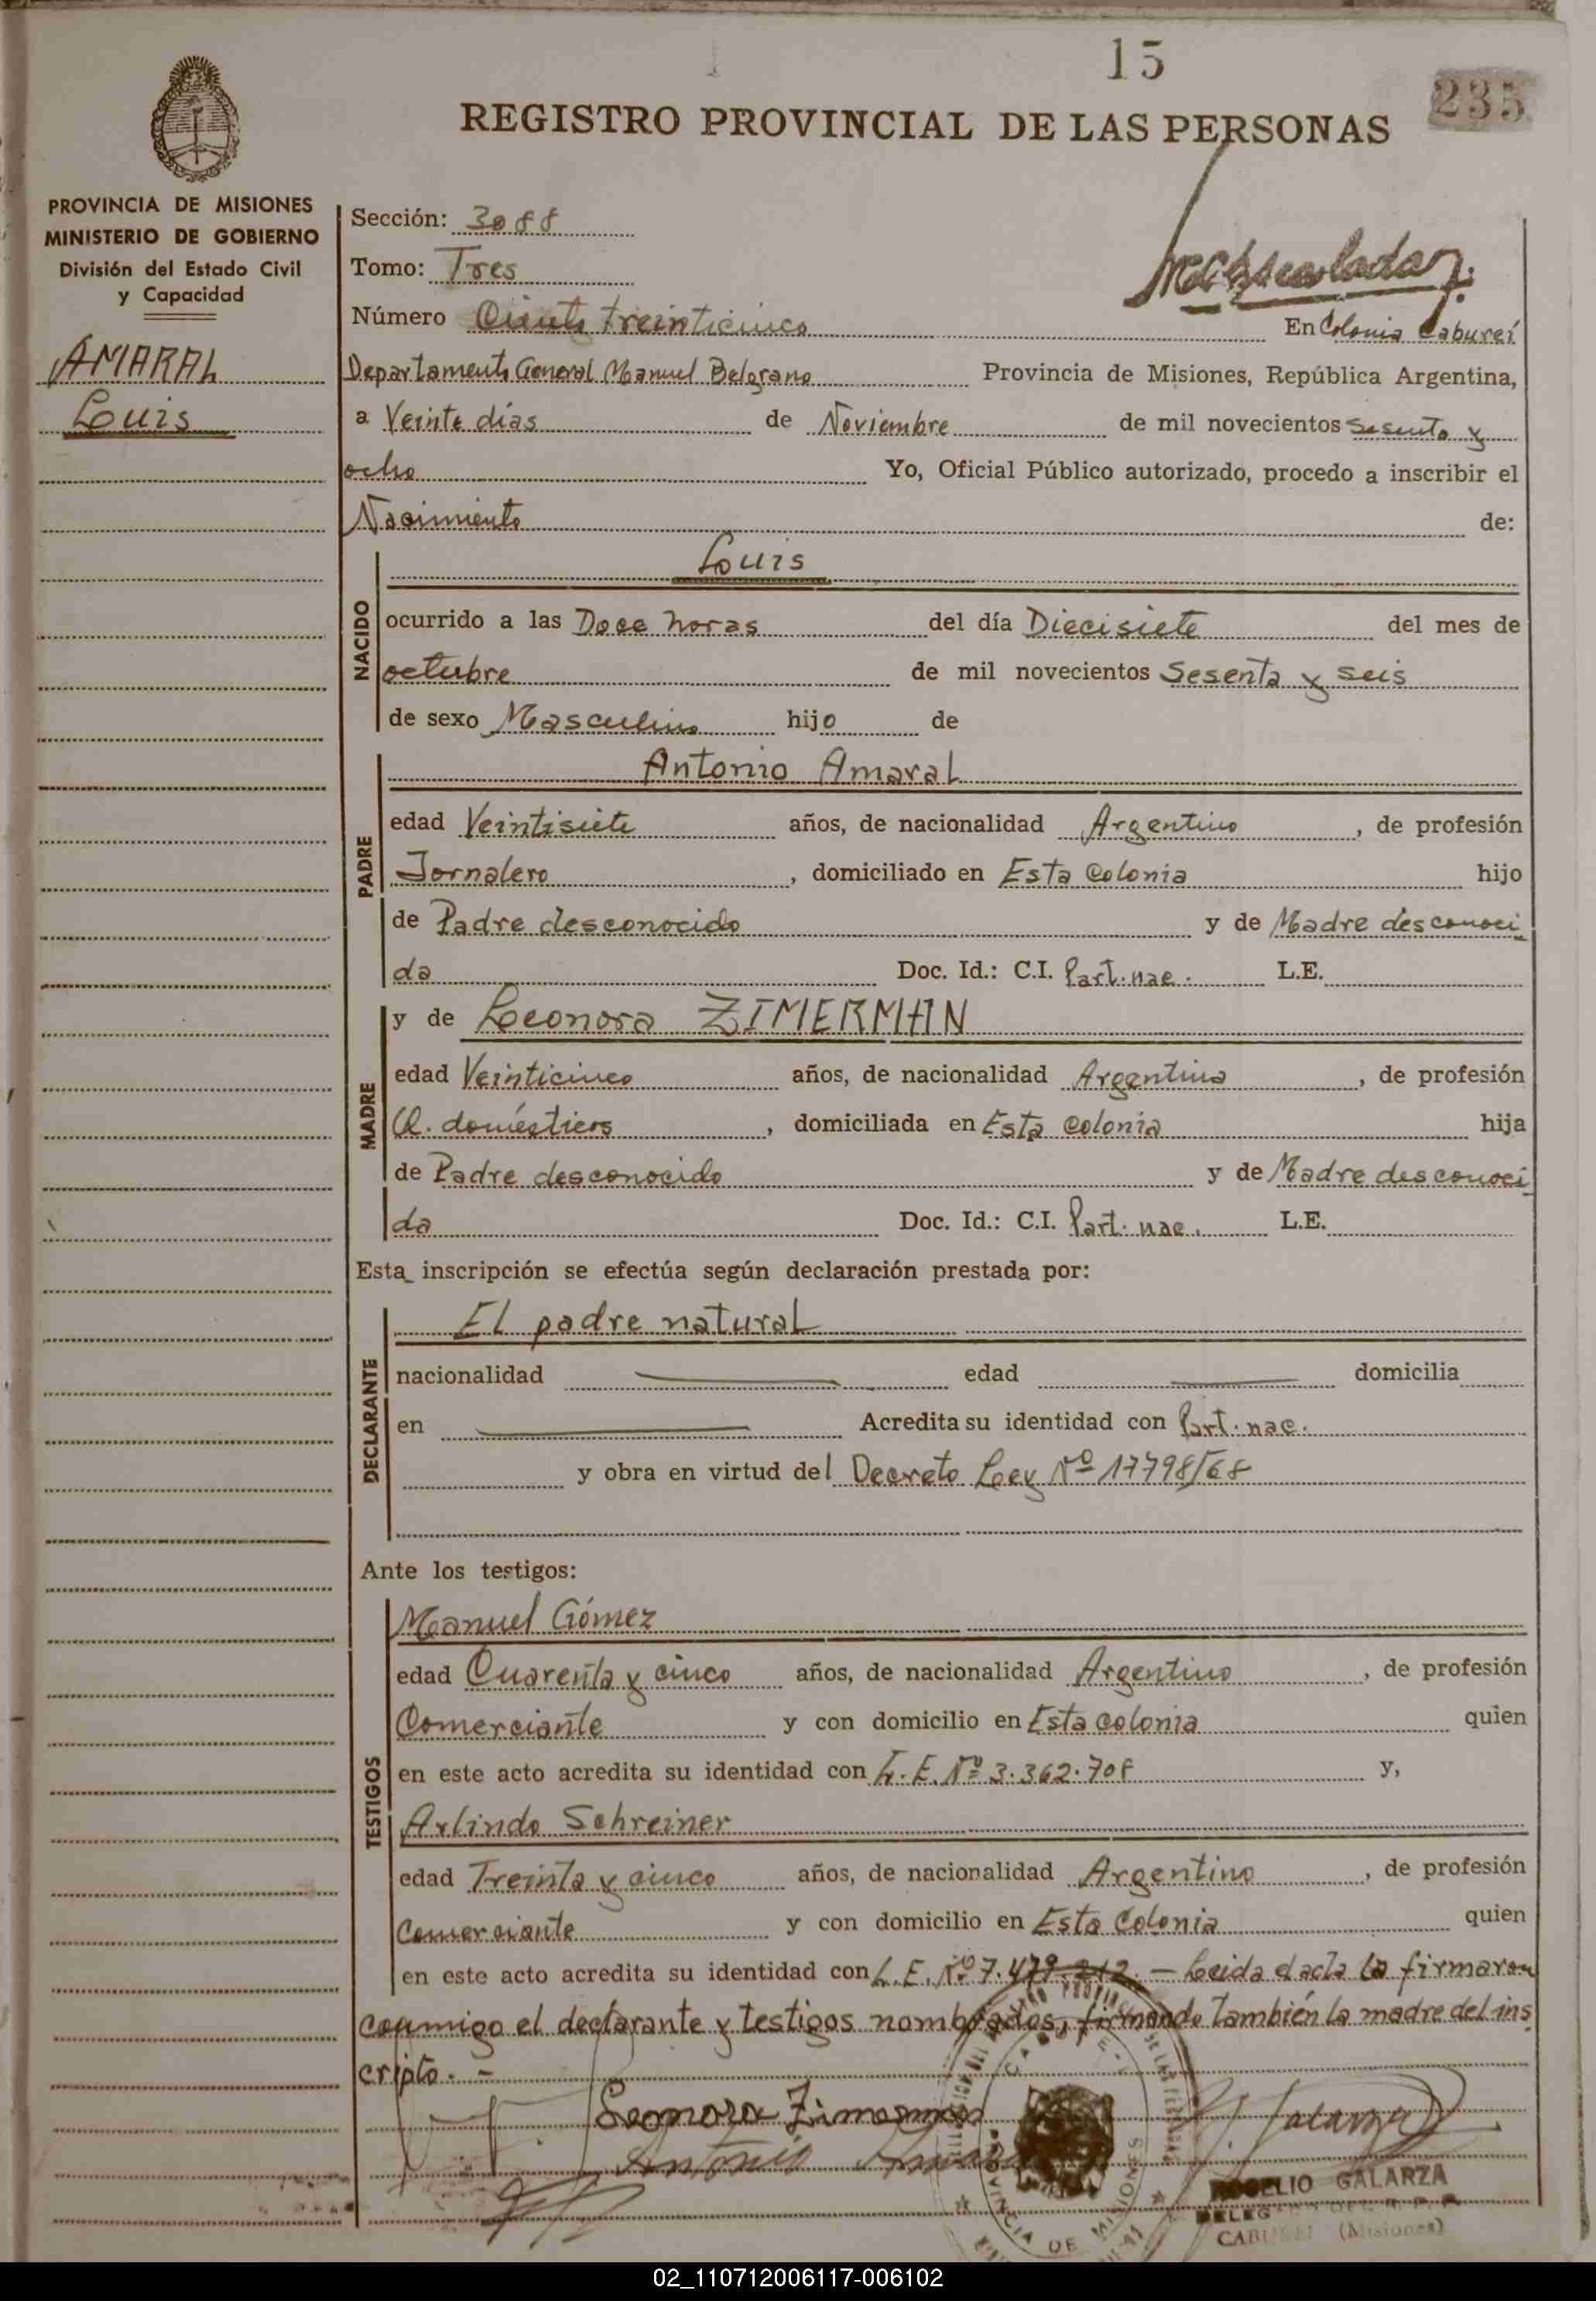 15
235
REGISTRO PROVINCIAL DE LAS PERSONAS
PROVINCIA DE MISIONES
MINISTERIO DE GOBIERNO
División del Estado Civil
y Capacidad
AMARAL
Louis
Sección: 3088
Tomo: Tres
Número Ciento treinticinco En Colonia Caburei
Departamento General Manuel Belgrano Provincia de Misiones, República Argentina,
a Veinte días de Noviembre de mil novecientos Sesenta y
ocho Yo, Oficial Público autorizado, procedo a inscribir el
Nacimiento de:
NACIDO
Louis
ocurrido a las Doce horas del día Diecisiete del mes de
octubre de mil novecientos Sesenta y seis
de sexo Masculino hijo de
PADRE
Antonio Amaral
edad Veintisiete años, de nacionalidad Argentino, de profesión
Jornalero, domiciliado en Esta Colonia hijo
de Padre desconocido y de Madre desconoci
da Doc. Id.: C.I. Part. nac. L.E.
MADRE
y de Leonora ZIMERMAN
edad Veinticinco años, de nacionalidad Argentina, de profesión
Q. domésticos, domiciliada en Esta colonia hija
de Padre desconocido y de Madre desconoci
da Doc. Id.: C.I. Part. nac. L.E.
Esta inscripción se efectúa según declaración prestada por:
DECLARANTE
El padre natural
nacionalidad edad domicilia
en Acredita su identidad con Part. nac.
y obra en virtud del Decreto Ley Nº 17798/68
Ante los testigos:
TESTIGOS
Manuel Gómez
edad Cuarenta y cinco años, de nacionalidad Argentino, de profesión
Comerciante y con domicilio en Esta colonia quien
en este acto acredita su identidad con L.E. Nº 3.362.708 y,
Arlindo Schreiner
edad Treinta y cinco años, de nacionalidad Argentino, de profesión
Comerciante y con domicilio en Esta Colonia quien
en este acto acredita su identidad con L.E. Nº 7.479.212. — Leida el acta la firmaron
conmigo el declarante y testigos nombrados, firmando también la madre del ins
cripto. -
Leonora Zimerman
Antonio Amaral
R. Galarza
ROGELIO GALARZA
CABUREI (Misiones)
PROVINCIA DE MISIONES
02_110712006117-006102